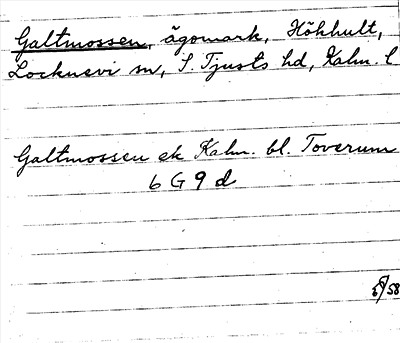 Galtmossen, ägomark, Hökhult,
Locknevi sn, S. Tjusts hd, Kalm. l
Galtmossen ek Kalm. bl. Toverum
6 G 9 d